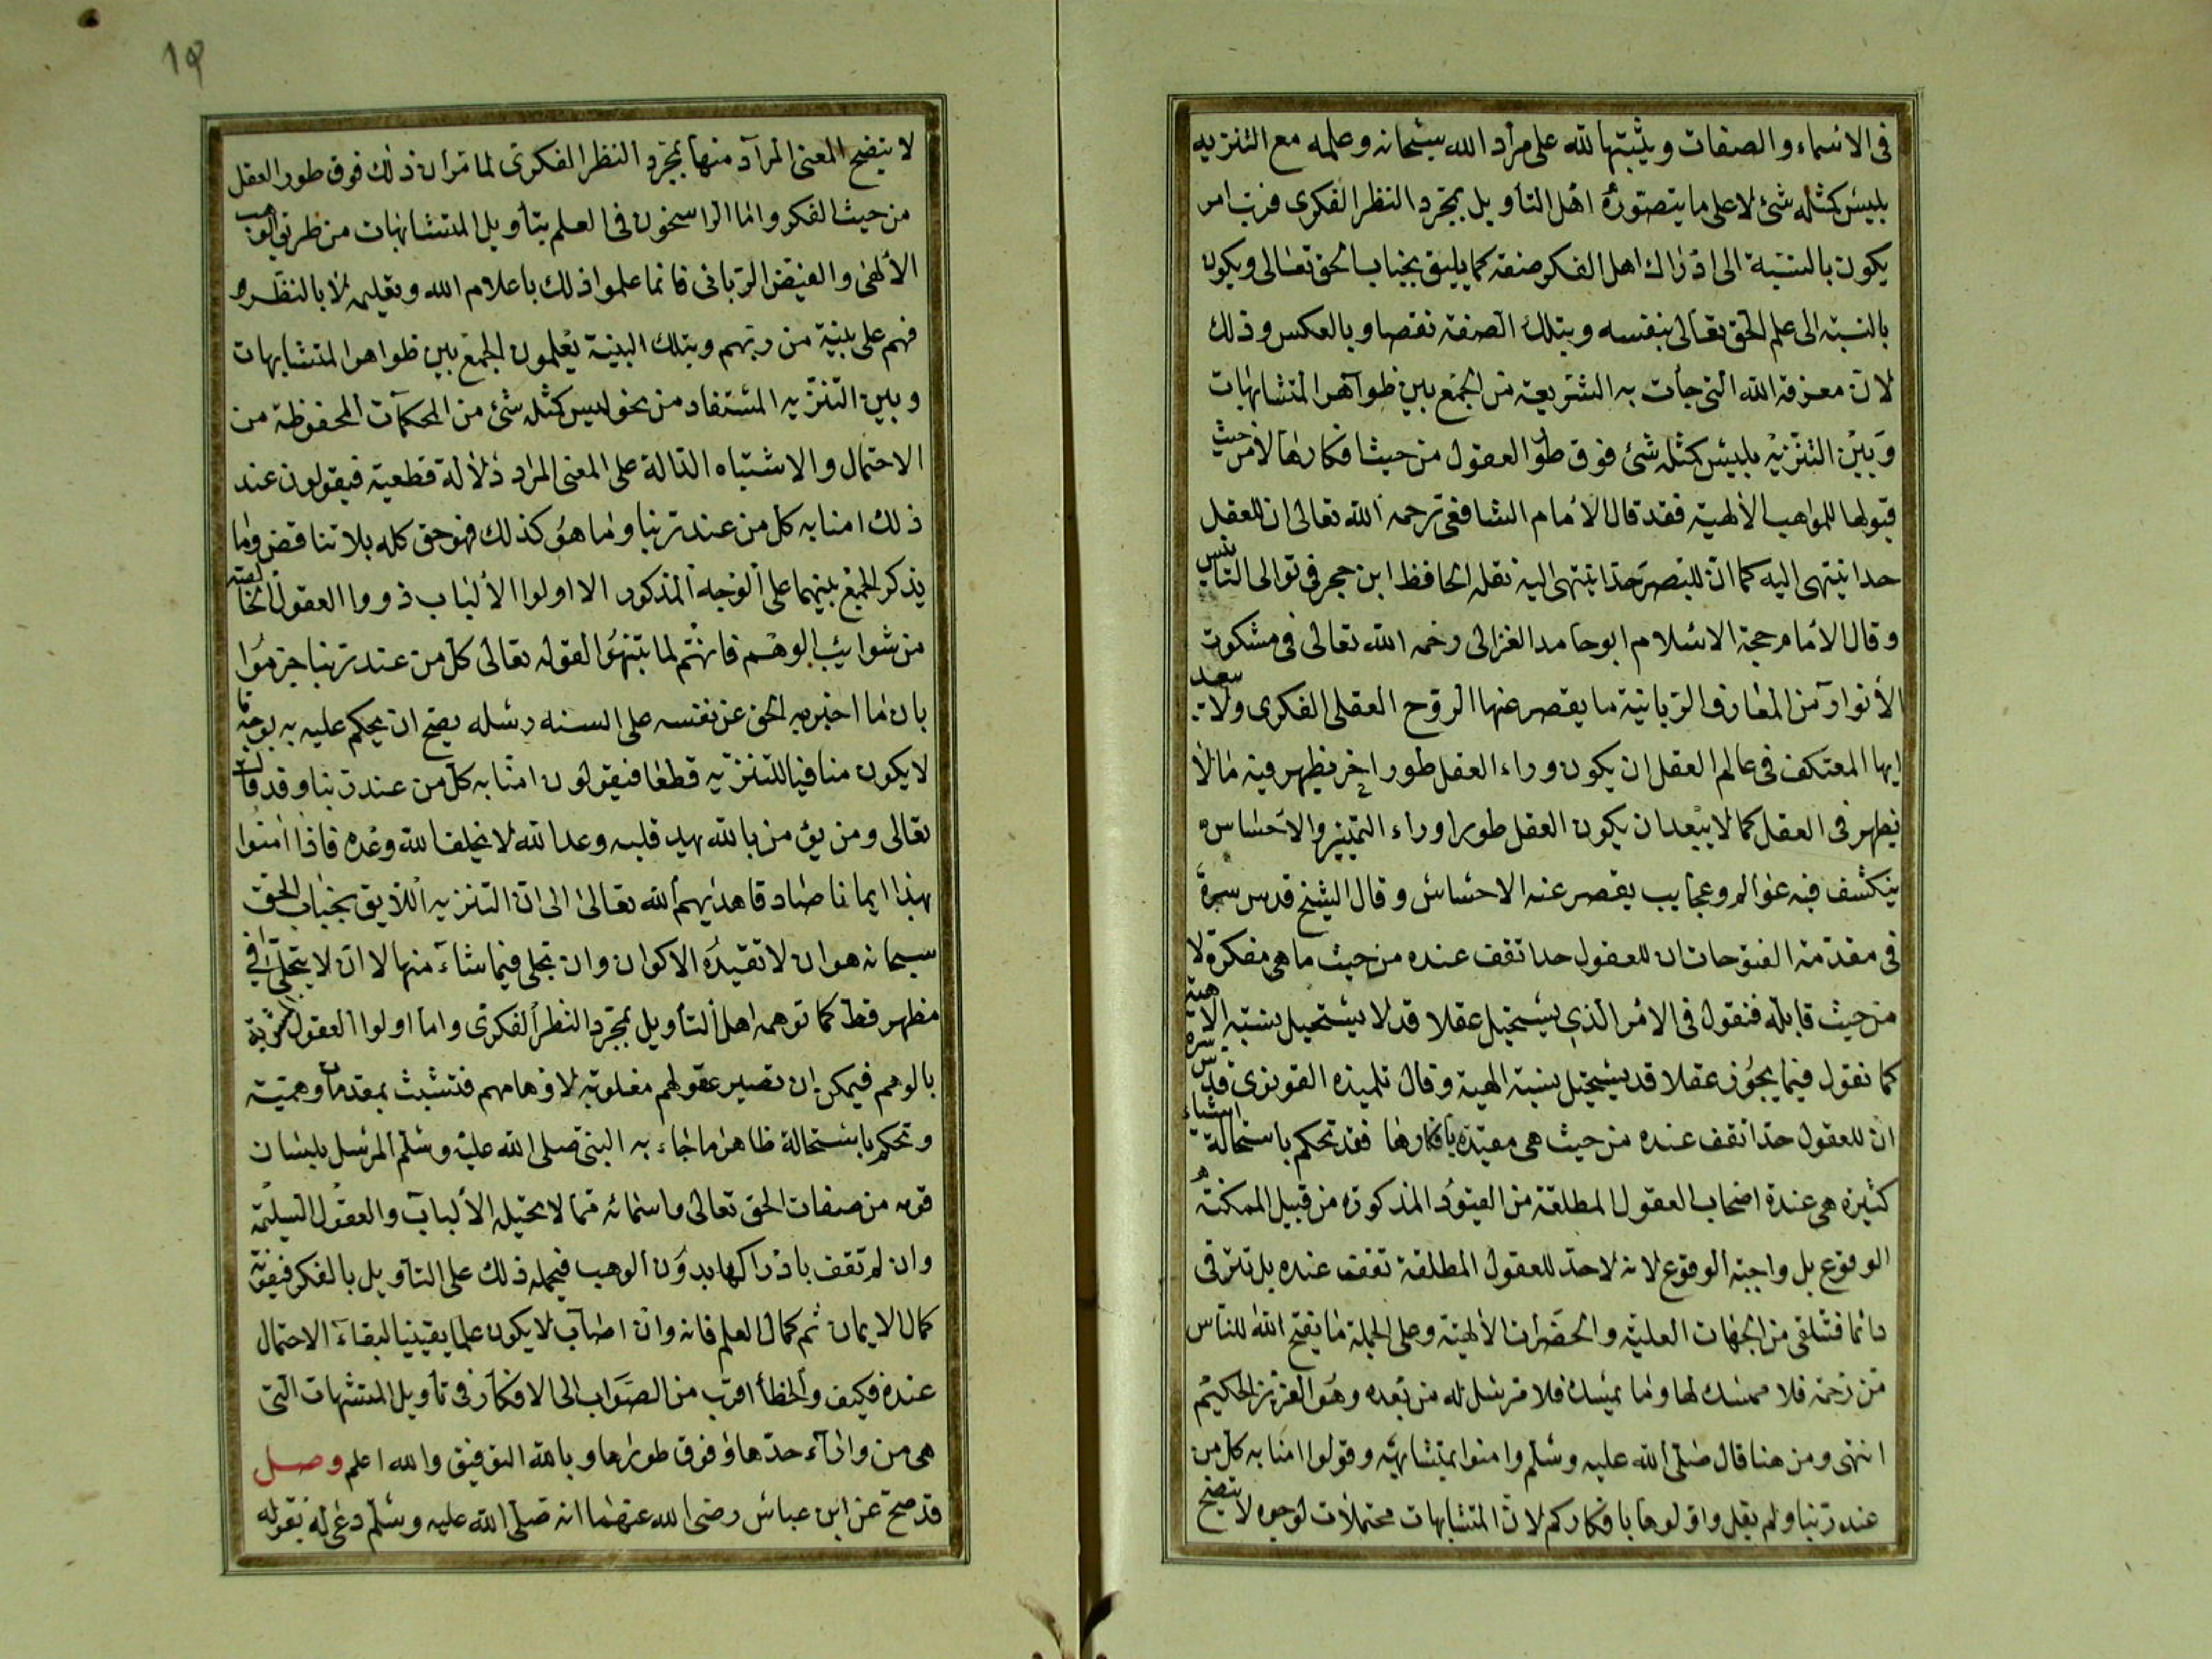 في الاسماء والصفات ويثبتها لله على مراد الله سبحانه وعلمه مع التنزيه
بليس كمثله شئ لا على ما يتصوره اهل التأويل بمجرد النظر الفكرى فرب امر
يكون بالنسبة الى ادراك اهل الفكر صفة كما يليق بجناب الحق تعالى ويكون
بالنسبة الى علم الحق تعالى بنفسه وبتلك الصفة نقصا وبالعكس وذلك
لان معرفة الله التى جأت به الشريعة من الجمع بين ظواهر المتشابهات
وبين التنزيه بليس كمثله شئ فوق طور العقول من حيث افكارها لا من حيث
قبولها للمواهب الالهية فقد قال الامام الشافعى رحمه الله تعالى ان للعقل
حدا ينتهى اليه كما ان للبصر حدا ينتهى اليه نقله الحافظ ابن حجر فى توالى التأسيس
وقال الامام حجة الاسلام ابو حامد الغزالى رحمه الله تعالى فى مشكوت
الأنوار من المعارف الربانية ما يقصر عنها الروح العقلى الفكرى ولا يبعد
ايها المعتكف فى عالم العقل ان يكون وراء العقل طور اخر يظهر فيه ما لا
يظهر فى العقل كما لا يبعد ان يكون العقل طورا وراء التمييز والاحساس
ينكشف فيه عوالم وعجايب يقصر عنه الاحساس وقال الشيخ قدس سره
فى مقدمة الفتوحات ان للعقول حدا تقف عنده من حيث ما هى مفكرة لا
من حيث قابلة فنقول فى الامر الذى يستحيل عقلا قد لا يستحيل نسبة الاهية
كما نقول فيما يجوز عقلا قد يستحيل نسبة الهية وقال تلميذه القونوى قدس سره
ان للعقول حدا تقف عنده من حيث هى مقيدة بافكارها فقد تحكم باستحالة اشياء
كثيرة هى عندة اصحاب العقول المطلقة من القيود المذكورة من قبيل الممكنة
الوقوع بل واجبة الوقوع لانه لا حد للعقول المطلقة تقف عنده بل تترقى
دائما فتتلقى من الجهات العلية والحضرات الالهية وعلى الجملة ما يفتح الله للناس
من رحمة فلا ممسك لها وما يمسك فلا مرسل له من بعده وهو العزيز الحكيم
انتهى ومن هنا قال صلى الله عليه وسلم وامنوا بمتشابهه وقولوا امنا به كل من
عند ربنا ولم يقل واولوها بافكاركم لان المتشابهات محتملات لوجوه لا يتضح
لا يتضح المعنى المراد منها بمجرد النظر الفكرى لما مر ان ذلك فوق طور العقل
من حيث الفكر وانما الراسخون فى العلم بتأويل المتشابهات من طريق الوهب
الألهى والفيض الربانى فانما علموا ذلك باعلام الله وتعليمه لا بالنظر
فهم على بينة من ربهم وبتلك البينة يعلمون الجمع بين ظواهر المتشابهات
وبين التنزيه المستفاد من نحو ليس كمثله شئ من المحكمات المحفوظة من
الاحتمال والاشتباه الدالة على المعنى المراد دلالة قطعية فيقولون عند
ذلك امنا به كل من عند ربنا وما هو كذلك فهو حق كله بلا تناقض وما
يذكر الجمع بينهما على الوجه المذكور الا اولوا الألباب ذووا العقول الخالصة
من شوائب الوهم فانهم لما تنبهوا لقوله تعالى كل من عند ربنا جزموا
بان ما اخبر به الحق عن نفسه على السنه رسله يصح ان يحكم عليه به بوجه ما
لا يكون منافيا للتنزيه قطعا فيقولون امنا به كل من عند ربنا وقد قال
تعالى ومن يؤمن بالله يهد قلبه وعد الله لا يخلف الله وعده فاذا امنوا
بهذا ايمانا صادقا هديهم الله تعالى الى ان التنزيه اللايق بجناب الحق
سبحانه هو ان لا تقيده الاكوان وان تجلى فيما شاء منها لا ان لا يتجلى فى
مظهر قط كما توهمه اهل التأويل بمجرد النظر الفكرى واما اولوا العقول المشوبة
بالوهم فيمكن ان تصير عقولهم مغلوبة لاوهامهم فتتشبث بمقدمات وهمية
وتحكم باستحالة ظاهر ما جاء به النبى صلى الله عليه وسلم المرسل بلسان
قومه من صفات الحق تعالى واسمائه مما لا تحيله الألباب والعقول السليمة
وان لم تقف بادراكها بدون الوهب فيحمله ذلك على التأويل بالفكر فيفوته
كمال الايمان ثم كمال العلم فانه وان اصاب لا يكون علما يقينيا لبقاء الاحتمال
عنده فكيف والخطأ اقرب من الصواب الى الافكار فى تأويل المتشبهات التى
هى من واراء حدها وفوق طورها وبالله التوفيق والله اعلم وصل
قد صح عن ابن عباس رضى الله عنهما انه صلى الله عليه وسلم دعى له بقوله